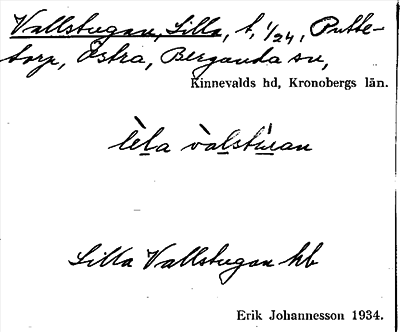 Vallstugan, Lilla, t, 1/24, Putte-
torp, Östra, Berganda sn,
Kinnevalds hd, Kronobergs län.
lèla vàlstúan
Lilla Vallstugan hb
Erik Johannesson 1934.